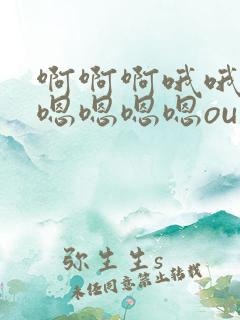 啊啊啊哦哦
嗯嗯嗯嗯ou
弥生生s
未经同意禁止转载